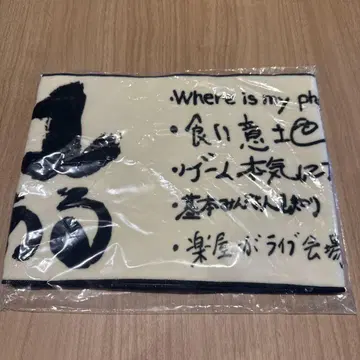 る
・Where is my ph
・食い意地
・ゲーム本気に
・基本みんな
・楽屋がライブ会場